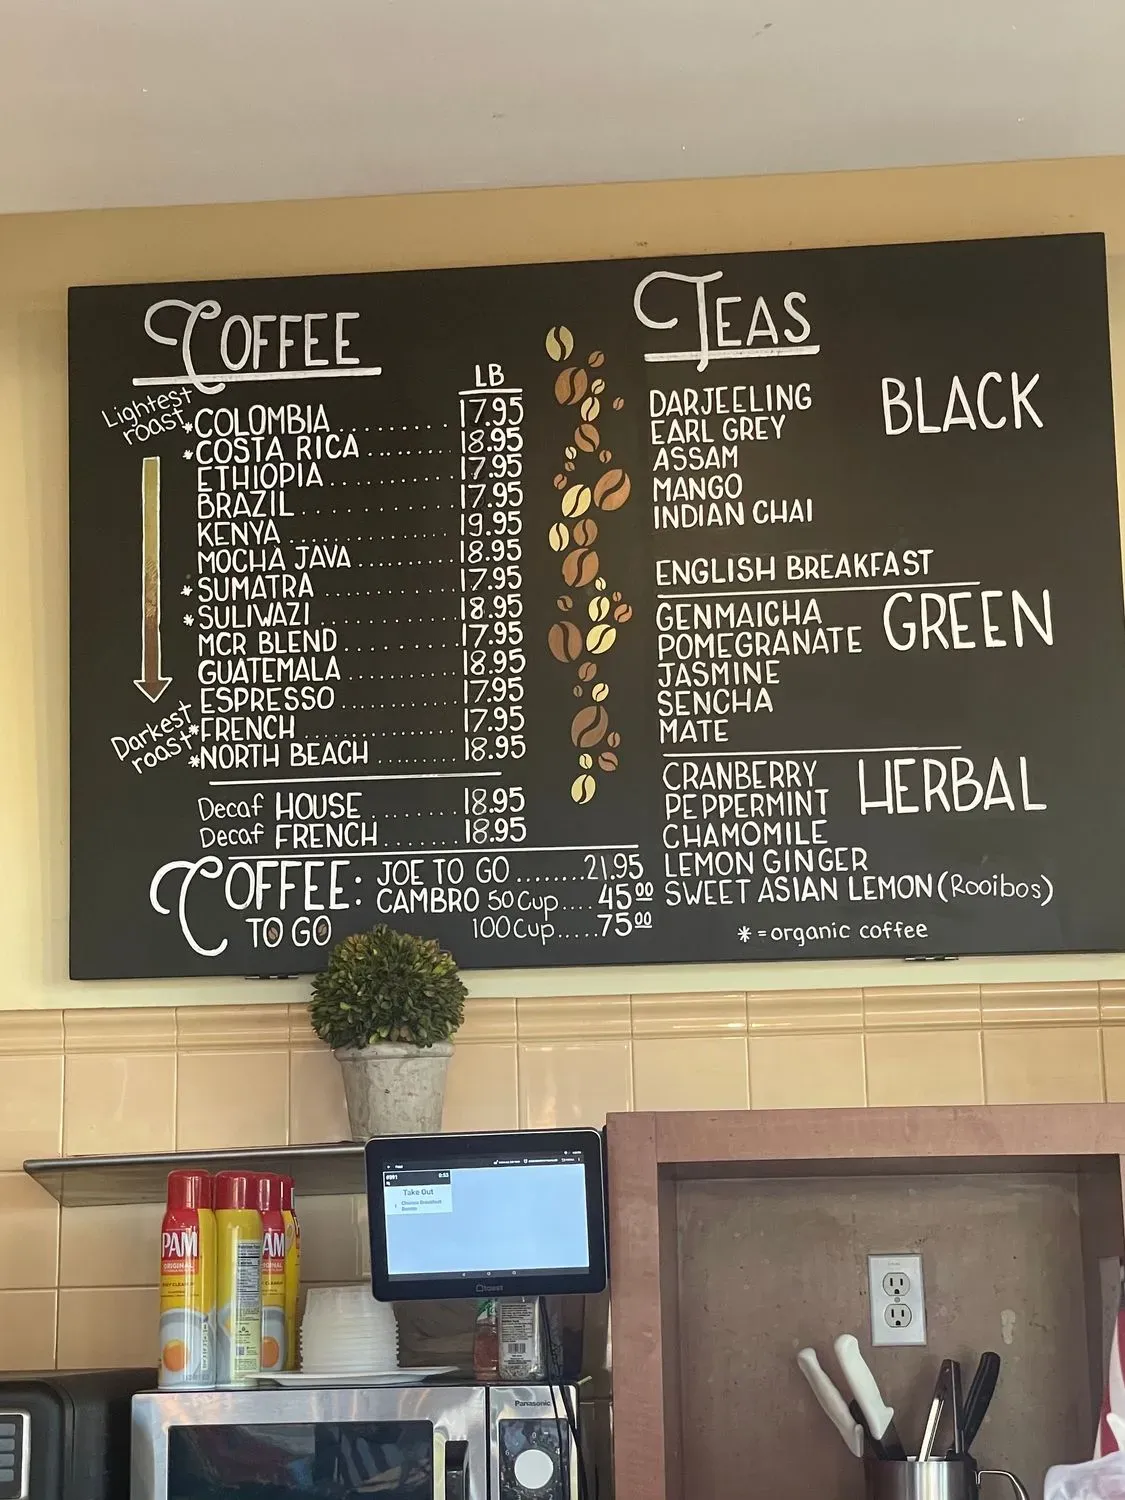 COFFEE
LB
Lightest
roast
*COLOMBIA.........17.95
*COSTA RICA........18.95
ETHIOPIA............17.95
BRAZIL..............17.95
KENYA..............19.95
MOCHA JAVA.........18.95
*SUMATRA............17.95
*SULIWAZI............18.95
MCR BLEND..........17.95
GUATEMALA..........18.95
ESPRESSO...........17.95
*FRENCH.............17.95
*NORTH BEACH.......18.95
Darkest
roast
Decaf HOUSE........18.95
Decaf FRENCH.......18.95
COFFEE:
TO GO
JOE TO GO........21.95
CAMBRO 50 Cup....45 00
100 Cup.....75 00
TEAS
BLACK
DARJEELING
EARL GREY
ASSAM
MANGO
INDIAN CHAI
ENGLISH BREAKFAST
GREEN
GENMAICHA
POMEGRANATE
JASMINE
SENCHA
MATE
HERBAL
CRANBERRY
PEPPERMINT
CHAMOMILE
LEMON GINGER
SWEET ASIAN LEMON (Rooibos)
* = organic coffee
Take Out
toast
PAM
ORIGINAL
AM
Panasonic